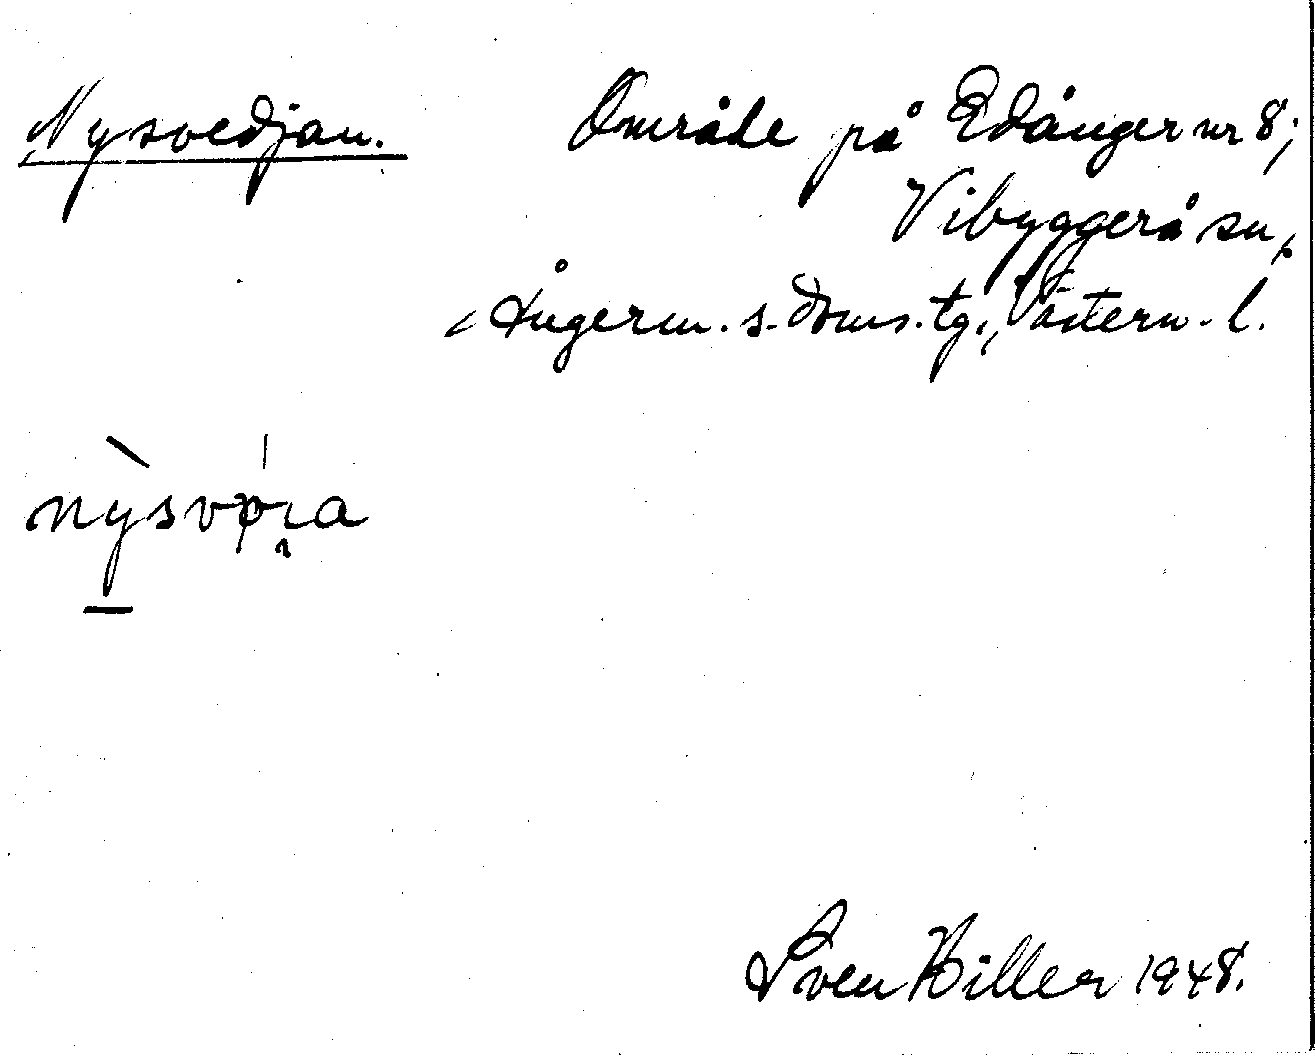 Nysvedjan. Område på Edånger nr 8;
Vibyggerå sn,
Ångerm. s. doms.tg., Västern. l.
nysvøıa
Sven Hiller 1948.